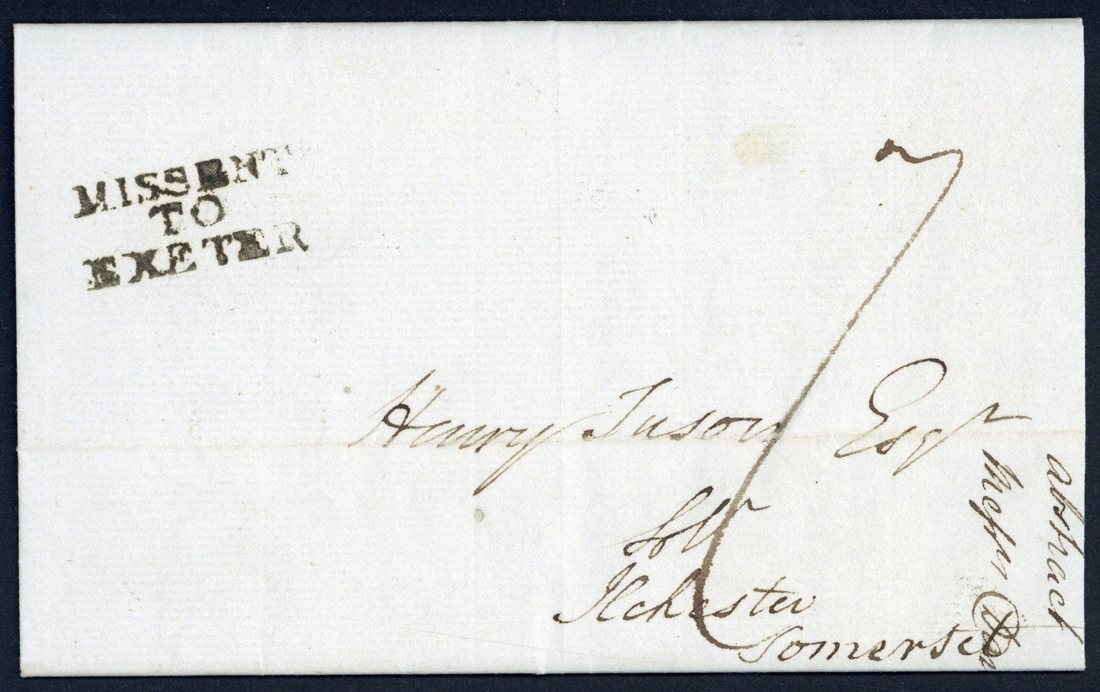 MISSENT
TO
EXETER
7
Henry Tuson Esqr
Ilchester
Somerset
abstract
Messrs